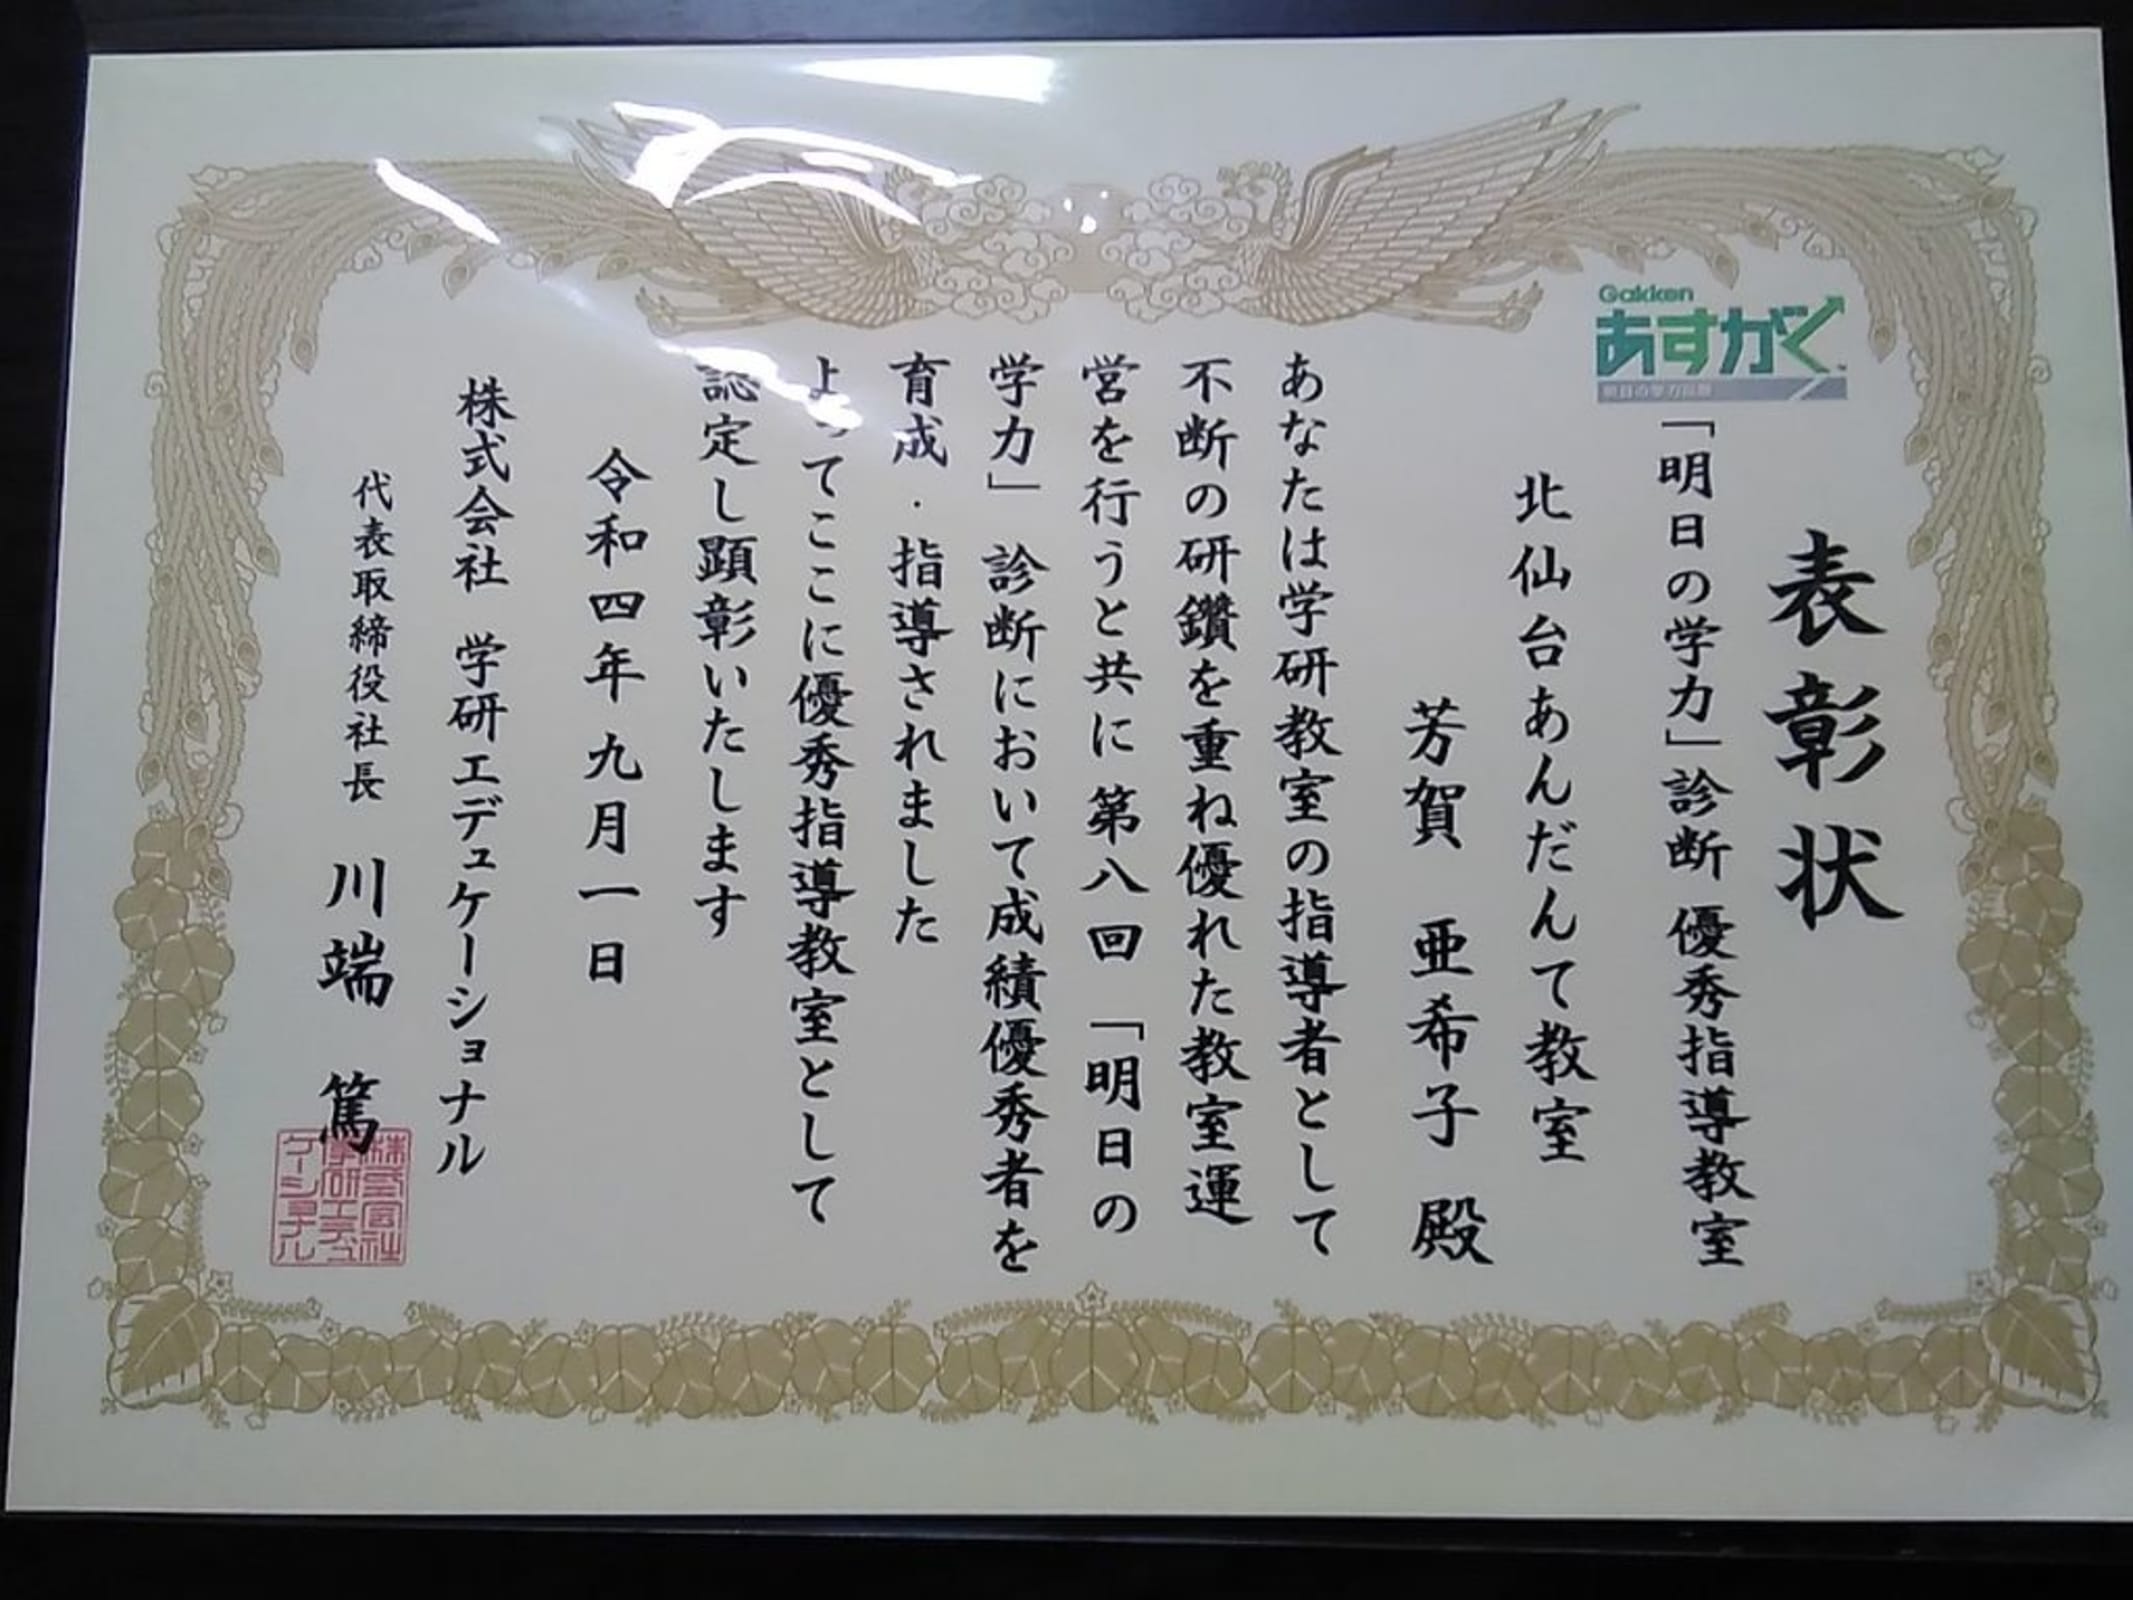 表彰状
Gakken
あすがく
「明日の学力」診断 優秀指導教室
北仙台あんだんて教室
芳賀 亜希子 殿
あなたは学研教室の指導者として
不断の研鑽を重ね優れた教室運
営を行うと共に第八回「明日の
学力」診断において成績優秀者を
育成・指導されました
よってここに優秀指導教室として
認定し顕彰いたします
令和四年九月一日
株式会社 学研エデュケーショナル
代表取締役社長 川端 篤
株式会社
学研エデュ
ケーショナル